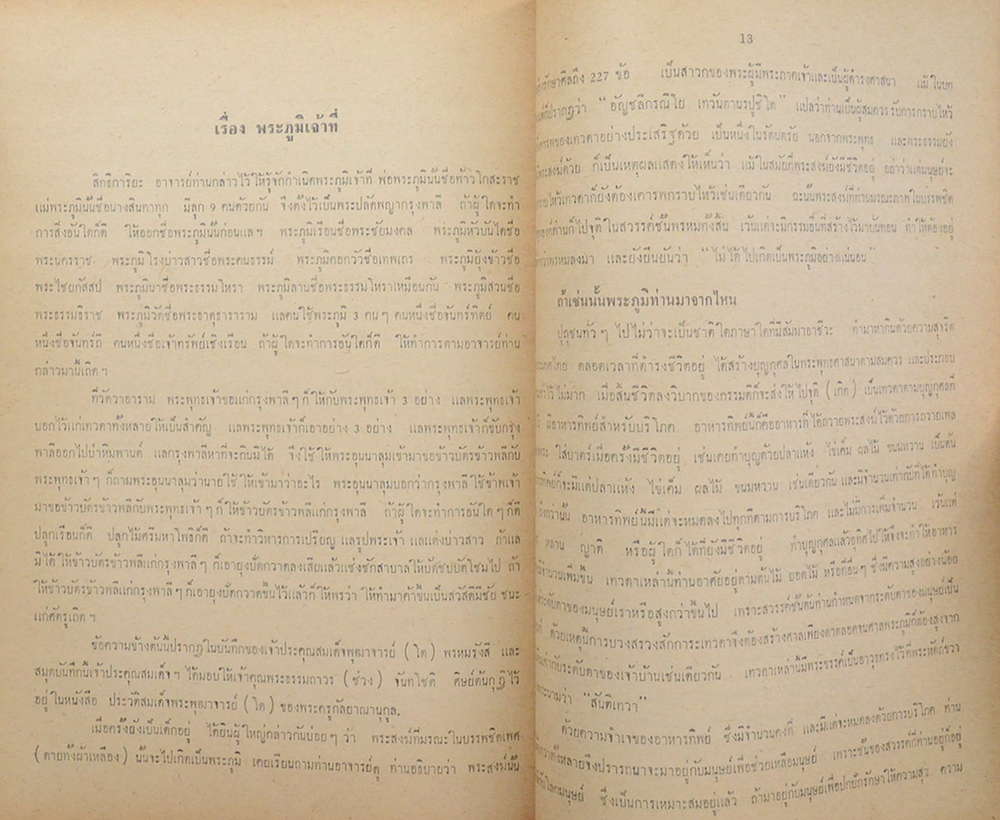 เรื่อง พระภูมิเจ้าที่
สิทธิการิยะ อาจารย์ท่านกล่าวไว้ให้รู้จักกำเนิดพระภูมิเจ้าที่ พ่อพระภูมินั้นชื่อท้าวโกสะราช
แม่พระภูมินั้นชื่อนางสินตาทุก มีลูก 9 คนด้วยกัน จึงตั้งไว้เป็นพระปลัดพญากรุงพาลี ถ้าผู้ใดจะทำ
การสิ่งอันใดก็ดี ให้ออกชื่อพระภูมินั้นก่อนแล ฯ พระภูมิเรือนชื่อพระชัยมงคล พระภูมิหัวบันไดชื่อ
พระนครราช พระภูมิโรงบ่าวสาวชื่อพระคนธรรม์ พระภูมิคอกวัวชื่อเทพเถร พระภูมิยุ้งข้าวชื่อ
พระไชยกัสสป พระภูมินาชื่อพระธรรมโหรา พระภูมิลานชื่อพระธรรมโหราเหมือนกัน พระภูมิสวนชื่อ
พระธรรมิราช พระภูมิวัดชื่อพระธาตุธาราราม แลคนใช้พระภูมิ 3 คน ๆ คนหนึ่งชื่อจันทร์ทิตย์ คน
หนึ่งชื่อจันทร์ถี คนหนึ่งชื่อเจ้าทรัพย์เชิงเรือน ถ้าผู้ใดจะทำการอันใดก็ดี ให้ทำการตามอาจารย์ท่าน
กล่าวมานี้เถิด ฯ
ที่วัดวาอาราม พระพุทธเจ้าขอแก่กรุงพาลี ๆ ก็ให้กับพระพุทธเจ้า 3 อย่าง แลพระพุทธเจ้า
บอกไว้แก่เทวดาทั้งหลายให้เป็นสำคัญ แลพระพุทธเจ้าก็เอาอย่าง 3 อย่าง แลพระพุทธเจ้าก็ขับกรุง
พาลีออกไปป่าหิมพานต์ แลกรุงพาลีหาที่จะกินมิได้ จึงใช้ให้พระอุนนาลุมเข้ามาขอข้าวบัตรข้าวพลีกับ
พระพุทธเจ้า ๆ ก็ถามพระอุนนาลุมว่านายใช้ให้เข้ามาว่าอะไร พระอุนนาลุมบอกว่ากรุงพาลีใช้ข้าพเจ้า
มาขอข้าวบัตรข้าวพลีกับพระพุทธเจ้า ๆ ก็ให้ข้าวบัตรข้าวพลีแก่กรุงพาลี ถ้าผู้ใดจะทำการอันใด ๆ ก็ดี
ปลูกเรือนก็ดี ปลูกไม้ศรีมหาโพธิก็ดี ถ้าจะทำวิหารการเปรียญ แลรูปพระเจ้า แลแต่งบ่าวสาว ถ้าแล
มิได้ให้ข้าวบัตรข้าวพลีแก่กรุงพาลี ๆ ก็เอายุงปัดกวาดลงเสียแล้วแช่งชักสาบาลให้บัดซบบัดโซมไป ถ้า
ให้ข้าวบัตรข้าวพลีแก่กรุงพาลี ๆ ก็เอายุงปัดกวาดขึ้นไว้แล้วก็ให้พรว่า ให้ทำมาค้าขึ้นเป็นสวัสดิมีชัย ชนะ
แก่ศัตรูเถิด ฯ
ข้อความข้างต้นนี้ปรากฏในบันทึกของเจ้าประคุณสมเด็จพุฒาจารย์ (โต) พรหมรังสี และ
สมุดบันทึกนี้เจ้าประคุณสมเด็จ ฯ ได้มอบให้เจ้าคุณพระธรรมถาวร (ช่วง) จันทโชติ ศิษย์ต้นกุฏิไว้
อยู่ในหนังสือ ประวัติสมเด็จพระพุฒาจารย์ (โต) ของพระครูกัลยาณานุกูล.
เมื่อครั้งยังเป็นเด็กอยู่ ได้ยินผู้ใหญ่กล่าวกันบ่อย ๆ ว่า พระสงฆ์ที่มรณะในบรรพชิตเพศ
(ตายทั้งผ้าเหลือง) นั้นจะไปเกิดเป็นพระภูมิ เคยเรียนถามท่านอาจารย์ดู ท่านอธิบายว่า พระสงฆ์นั้น
13
รักษาศีลถึง 227 ข้อ เป็นสาวกของพระผู้มีพระภาคเจ้าและเป็นผู้ดำรงศาสนา แม้ในบท
ก็ปรากฏว่า “อัญชลีกรณีโย เทวันตานรปูชิโต” แปลว่าท่านเป็นผู้สมควรรับการกราบไหว้
ของเทวดาอย่างประเสริฐด้วย เป็นหนึ่งในรัตนตรัย นอกจากพระพุทธ และพระธรรมยัง
พระสงฆ์ด้วย ก็เป็นเหตุผลแสดงให้เห็นว่า แม้ในสมัยที่พระสงฆ์ยังมีชีวิตอยู่ อย่าว่าแต่มนุษย์จะ
ไหว้เทวดาก็ยังต้องเคารพกราบไหว้เช่นเดียวกัน ฉะนั้นพระสงฆ์ที่ท่านมรณะภาพในบรรพชิต
ท่านก็ไปจุติในสวรรค์ชั้นพรหมทั้งสิ้น เว้นแต่จะมีกรรมอื่นที่สร้างไว้มาบั่นทอน ทำให้ต้องอยู่
พรหมลงมา และยังยืนยันว่า “ไม่ได้ไปเกิดเป็นพระภูมิอย่างแน่นอน”
ถ้าเช่นนั้นพระภูมิท่านมาจากไหน
ปุถุชนทั่ว ๆ ไปไม่ว่าจะเป็นชาติใดภาษาใดที่มีสัมมาอาชีวะ ทำมาหากินด้วยความสุจริต
ตลอดเวลาที่ดำรงชีวิตอยู่ ได้สร้างบุญกุศลในพระพุทธศาสนาตามสมควร และประกอบ
ไว้ไม่มาก เมื่อสิ้นชีวิตลงวิบากของกรรมดีก็จะส่งให้ไปจุติ (เกิด) เป็นเทวดาตามบุญกุศลที่
มีอาหารทิพย์สำหรับบริโภค อาหารทิพย์นี้ก็คืออาหารที่ได้ถวายพระสงฆ์ไว้ด้วยการถวายเพล
ใส่บาตรเมื่อครั้งมีชีวิตอยู่ เช่นเคยทำบุญด้วยปลาแห้ง ไข่เค็ม ผลไม้ ขนมหวาน เป็นต้น
ก็จะมีแต่ปลาแห้ง ไข่เค็ม ผลไม้ ขนมหวาน เช่นเดียวกัน และมีจำนวนเท่ากับที่ได้ทำบุญ
เท่านั้น อาหารทิพย์นี้มีแต่จะหมดลงไปทุกทีตามการบริโภค และไม่มีการเพิ่มจำนวน เว้นแต่
หลาน ญาติ หรือผู้ใดก็ได้ที่ยังมีชีวิตอยู่ ทำบุญกุศลแล้วอุทิศไปให้จึงจะทำให้อาหาร
จำนวนเพิ่มขึ้น เทวดาเหล่านี้ท่านอาศัยอยู่ตามต้นไม้ ยอดไม้ หรือที่อื่น ๆ ซึ่งมีความสูงอย่างน้อย
ระดับตาของมนุษย์เราหรือสูงกว่าขึ้นไป เพราะสวรรค์ชั้นต้นท่านกำหนดจากระดับตาของมนุษย์เป็น
ด้วยเหตุนี้การบวงสรวงสักการะเทวดาจึงต้องสร้างศาลเพียงตาตลอดจนศาลพระภูมิก็ต้องสูงจาก
กับระดับตาของเจ้าบ้านเช่นเดียวกัน เทวดาเหล่านี้มีพระขรรค์เป็นอาวุธทรงไว้ที่พระหัตถ์ขวา
นามว่า “สันติเทวา”
ด้วยความจำเจของอาหารทิพย์ ซึ่งมีจำนวนคงที่ และมีแต่จะหมดลงด้วยการบริโภค ท่าน
ทั้งหลายจึงปรารถนาจะมาอยู่กับมนุษย์เพื่อช่วยเหลือมนุษย์ เพราะชั้นของสวรรค์ที่ท่านอยู่ก็อยู่
โลกมนุษย์ ซึ่งเป็นการเหมาะสมอยู่แล้ว ถ้ามาอยู่กับมนุษย์เพื่อปกปักรักษาให้ความสุข ความ